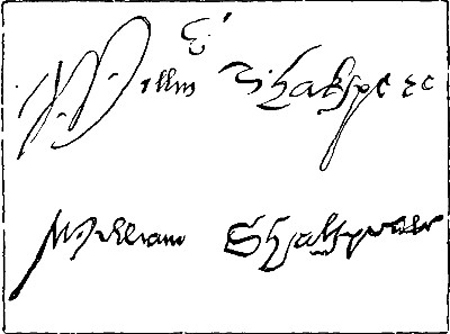 Willm Shakspere
William Shakspeare